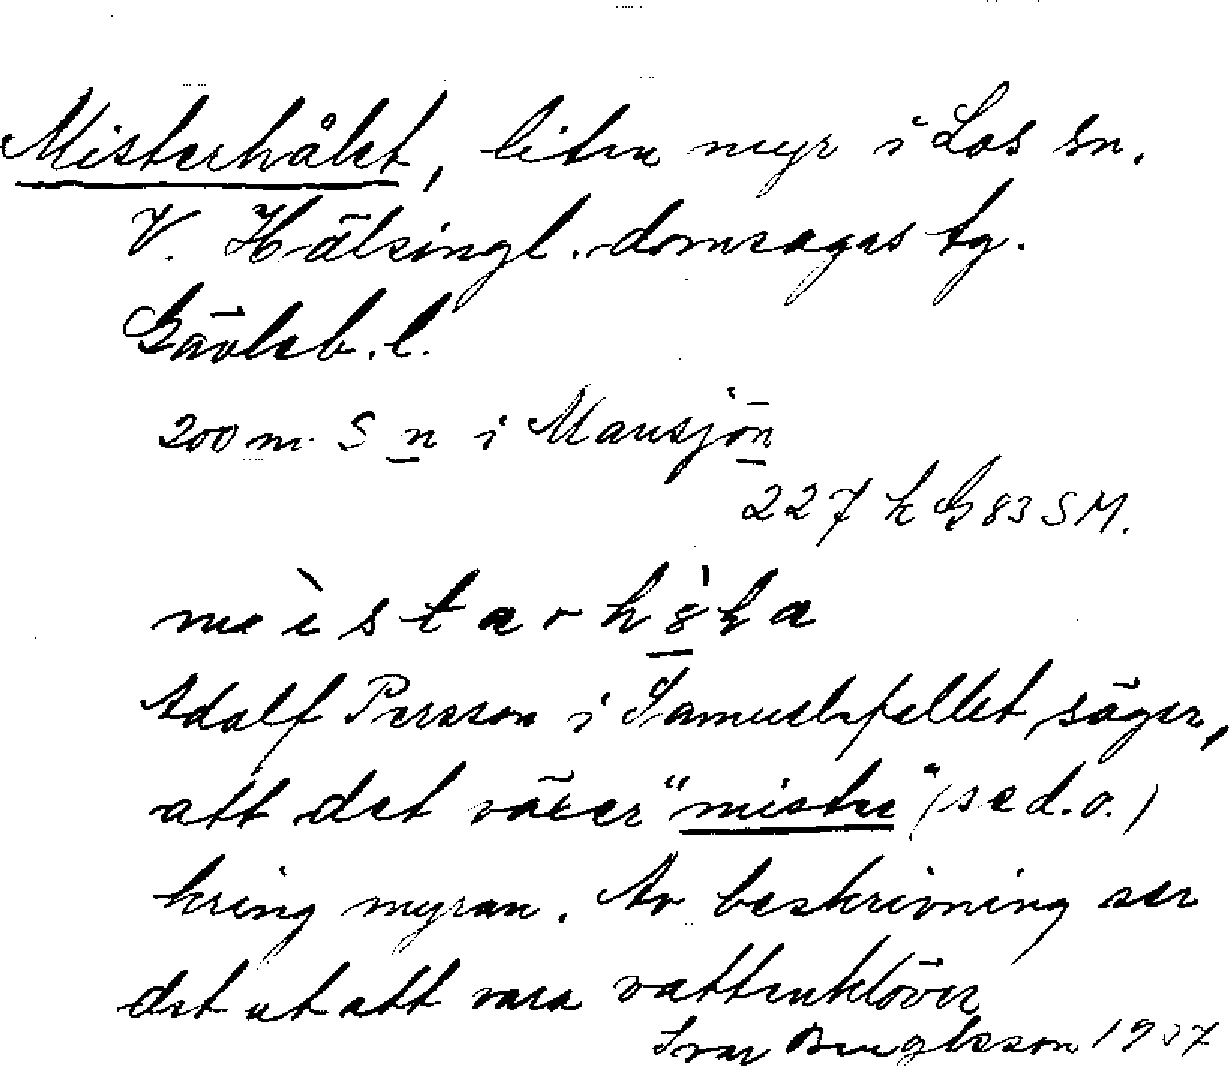 Misterhålet, liten myr i Los sn.
V. Hälsingl. domsagas tg.
Gävleb. l.
200 m. S n i Mansjön
227 h G 83 SM.
Adolf Persson i Samuelsfallet säger,
att det växer "mistre" (se d.o.)
kring myran. Av beskrivning ser
det ut att vara vattenklöver
Ivar Bengtsson 1937